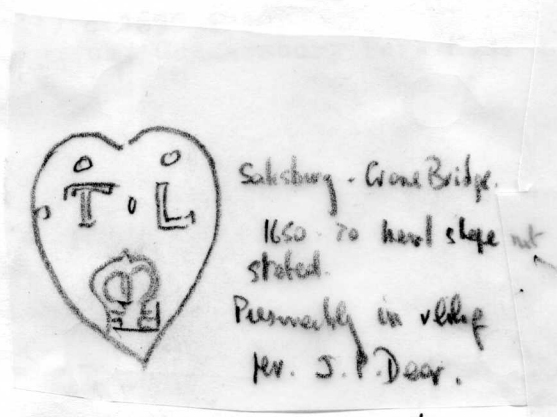 T L
Salisbury - Crane Bridge.
1650 - 70 bowl shape not
stated.
Presumably in
Mr. J. P. Dear.